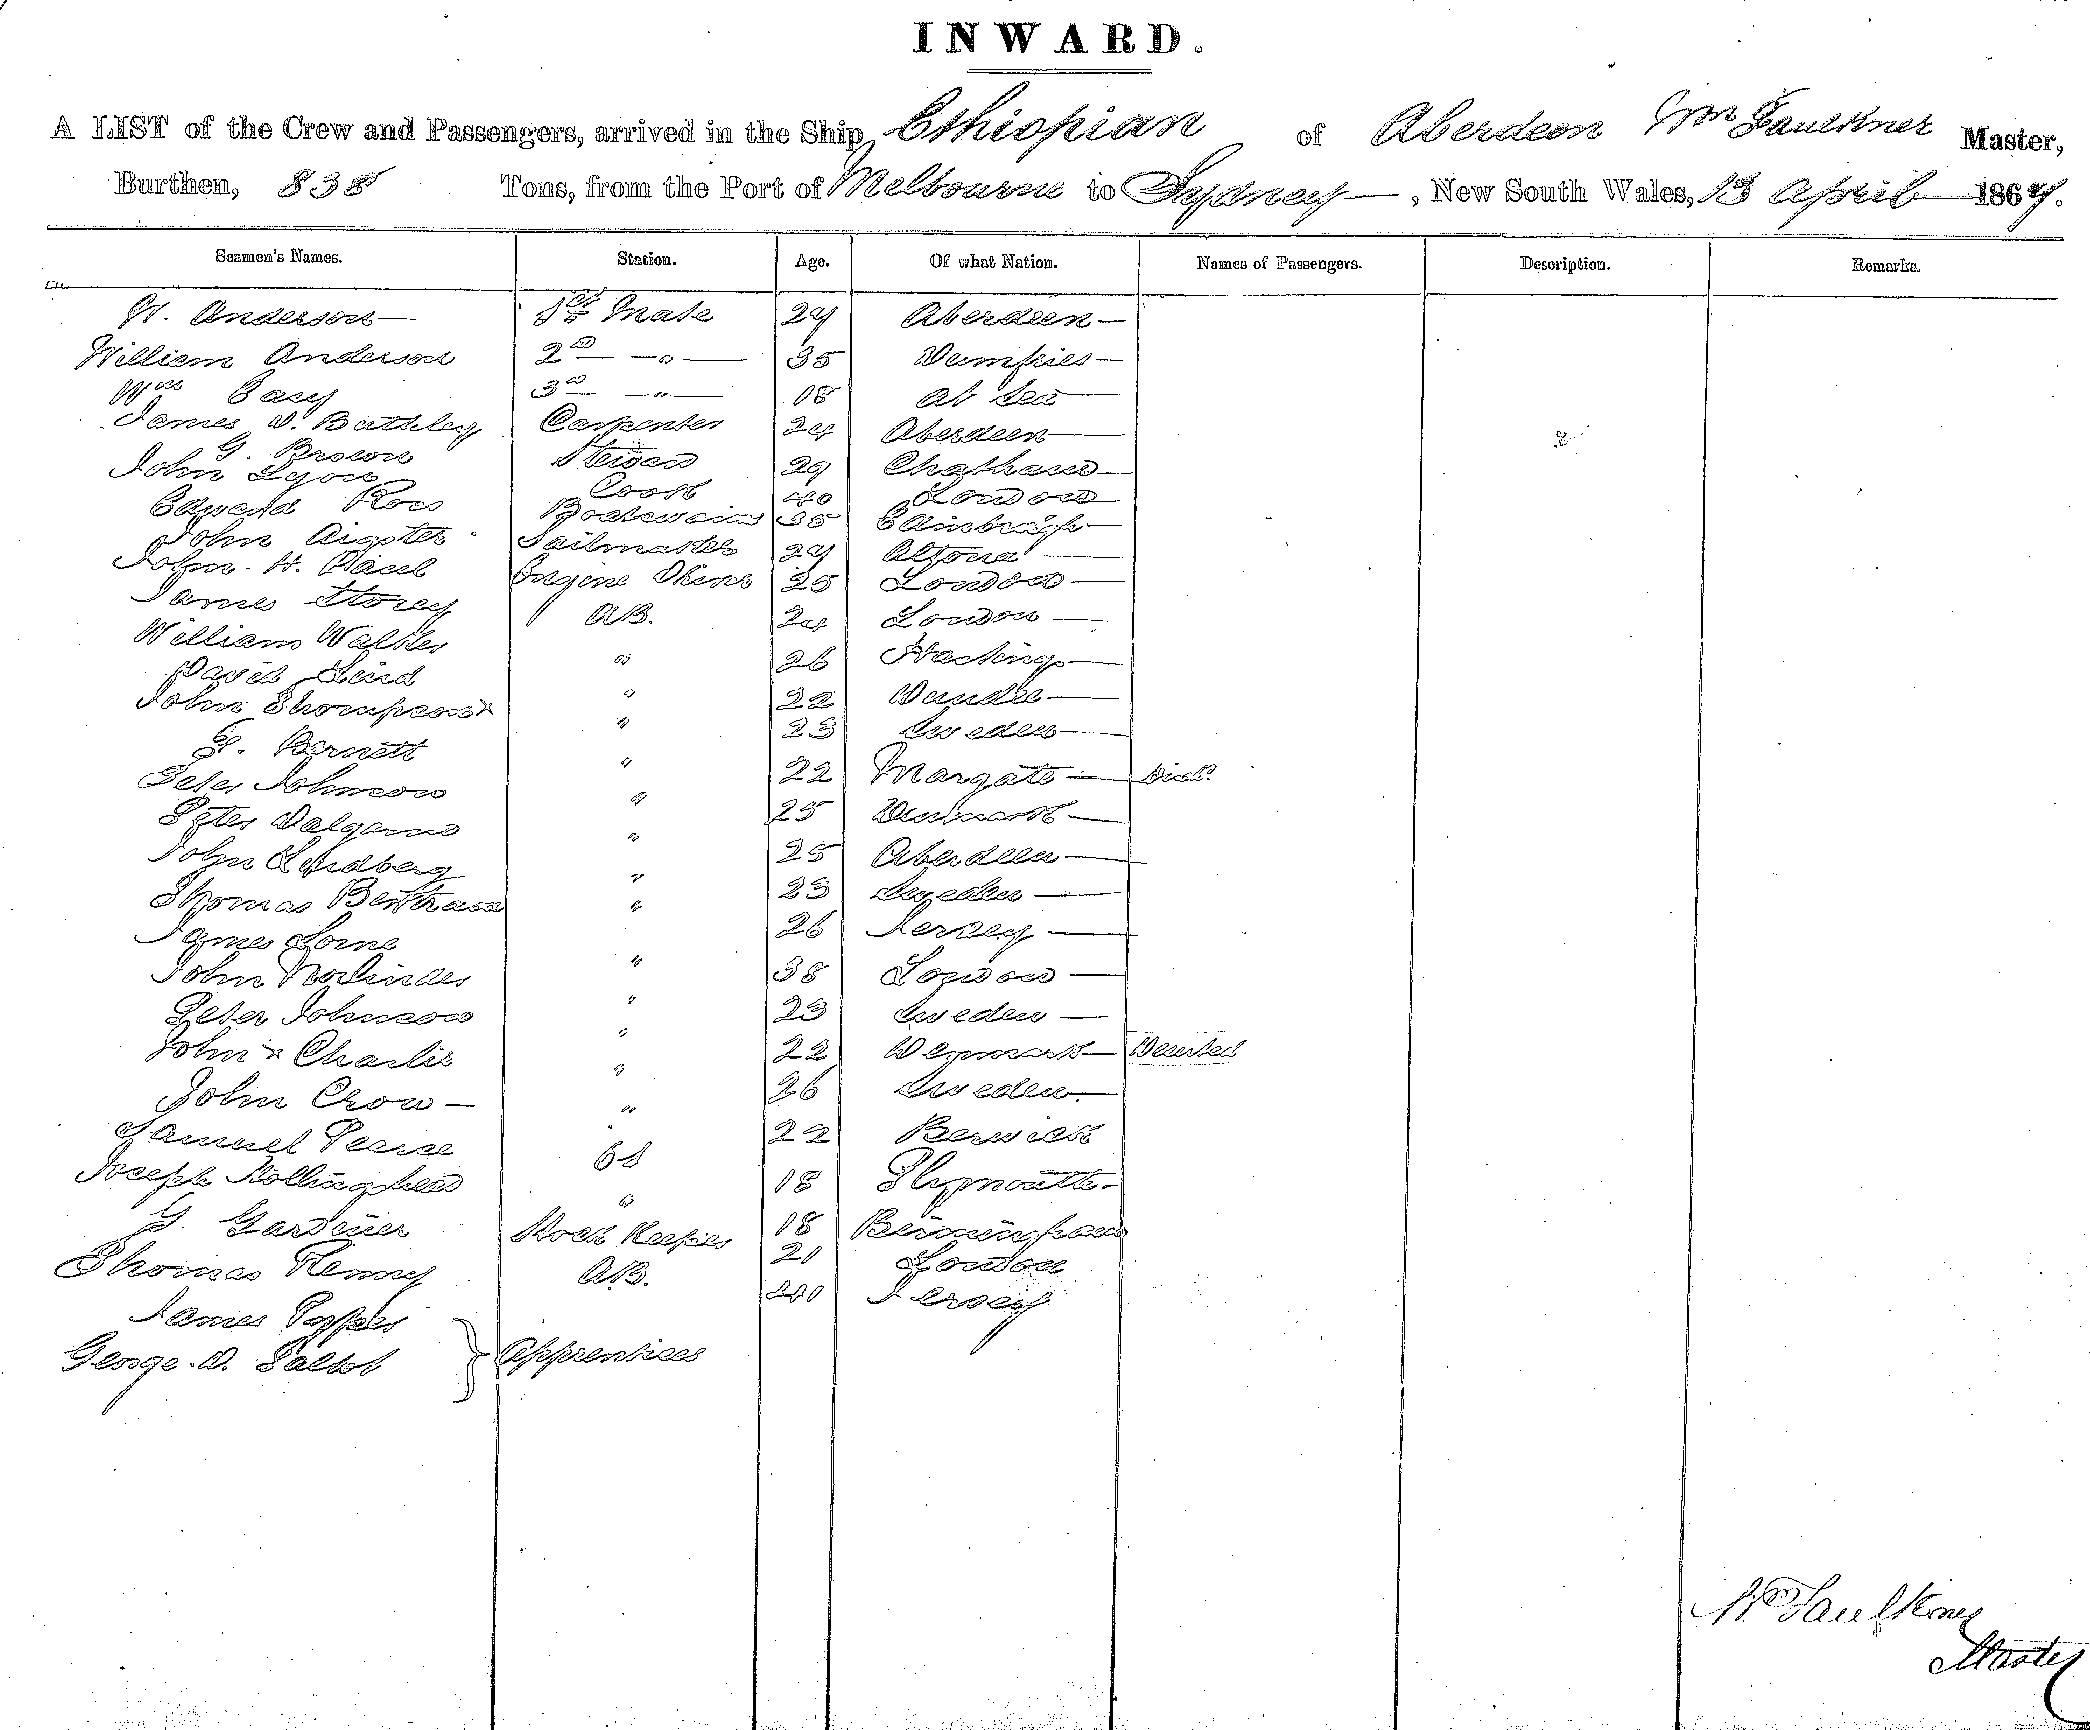 INWARD.
A LIST of the Crew and Passengers, arrived in the Ship Ethiopian of Aberdeen Wm Faulkner Master,
Burthen, 838 Tons, from the Port of Melbourne to Sydney, New South Wales, 13 April 1867.
Seamen's Names. Station. Age. Of what Nation. Names of Passengers. Description. Remarks.
W. Anderson 1st Mate 29 Aberdeen
William Anderson 2nd " 35 Dumfries
Wm 3rd " 18 At Sea
James D. Carpenter 24 Aberdeen
G. Brown 29 Chatham
John Lyon Cook 40 London
Edward Ross Boatswain 35 Edinburgh
John Sailmaker 29 Altona
John H. Engine 25 London
James Storey AB. 24 London
William Walker " 26 Hastings
David Laird " 22 Dundee
John Thompson " 23 Sweden
Bernett " 22 Margate
Peter Johnson " 25 Denmark
Peter Dalgarno " 25 Aberdeen
John Lindberg " 23 Sweden
Thomas " 26 Jersey
James " 38 London
John " 23 Sweden
Peter Johnson " 22 Denmark Deserted
John Charlie " 26 Sweden
John Crow " 22 Berwick
Samuel Pearse 18 Plymouth
Joseph Hollingshead " 18 Birmingham
G. Gardiner 21 London
Thomas Kenny AB. 40 Jersey
James
George D. Apprentices
Wm Faulkner
Master